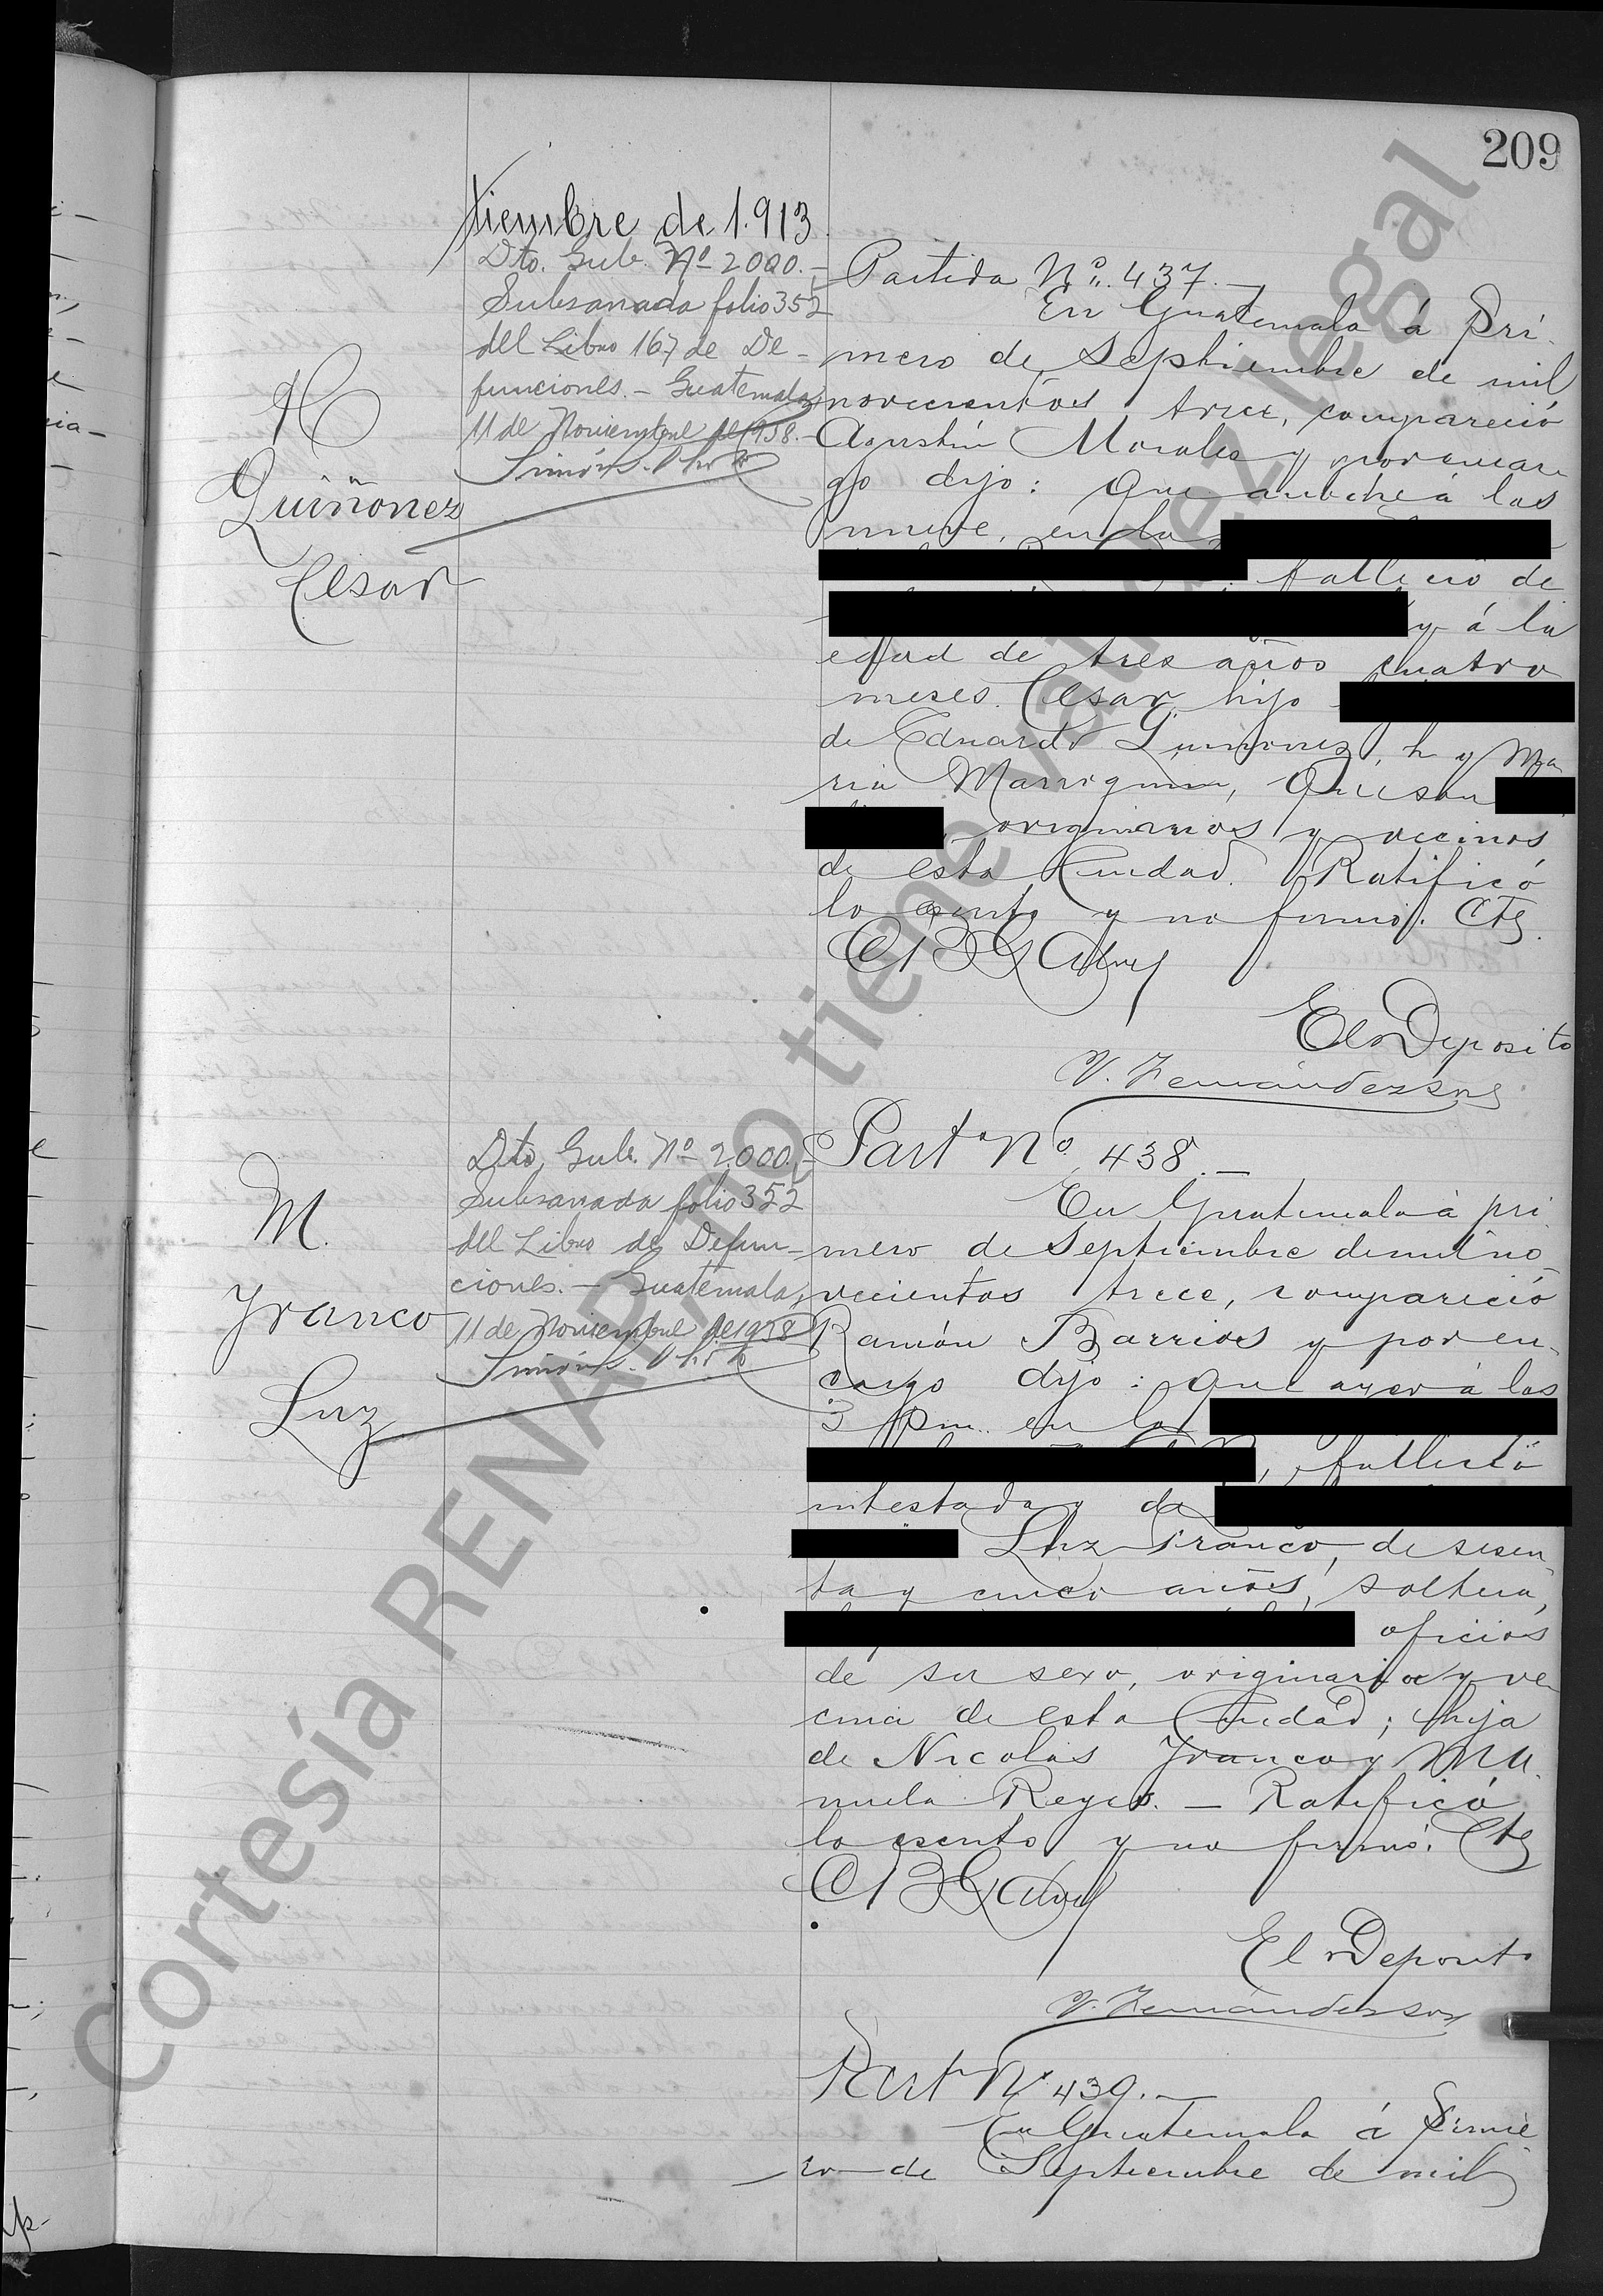 209
tiembre de 1.913
H
Quiñonez
Cesar
Dto. Gub. Nº 2000.-
Subsanada folio 352
del Libro 167 de De-
funciones. - Guatemala,
11 de Noviembre de 1958.-
Partida Nº. 437.-
En Guatemala á Pri-
mero de Septiembre de mil
novecientos trece, compareció
Agustín Morales y por encar-
go dijo: Que anoche á las
nueve, en la
falleció de
y á la
edad de tres años cuatro
meses. Cesar, hijo
de Eduardo Quinonez, h y Ma
ria Marroquin, Que son
originarios y vecinos
de esta Ciudad. Ratificó
lo escrito y no firmó. Ctg.
El Deposito
V. Fernández
M.
Franco
Luz
Dto. Gub. Nº 2000.-
Subsanada folio 352
del Libro de Defun-
ciones. - Guatemala,
11 de Noviembre de 1958
Partª Nº 438.-
En Guatemala á pri
mero de Septiembre de mil no
vecientos trece, compareció
Ramón Barrios y por en-
cargo dijo: que ayer á las
3 pm. en la
, falleció
intestada y de
Luz Franco, de sesen
ta y cinco años, soltera,
oficios
de su sexo, originaria y ve
cina de esta Ciudad; hija
de Nicolás Franco y Ma
nuela Reyes. - Ratificó
lo escrito y no firmó. Ctg
El Deposito
V. Fernández
Part Nº 439.-
En Guatemala á Prime
ro de Septiembre de mil
Cortesía RENAP, no tiene validez legal